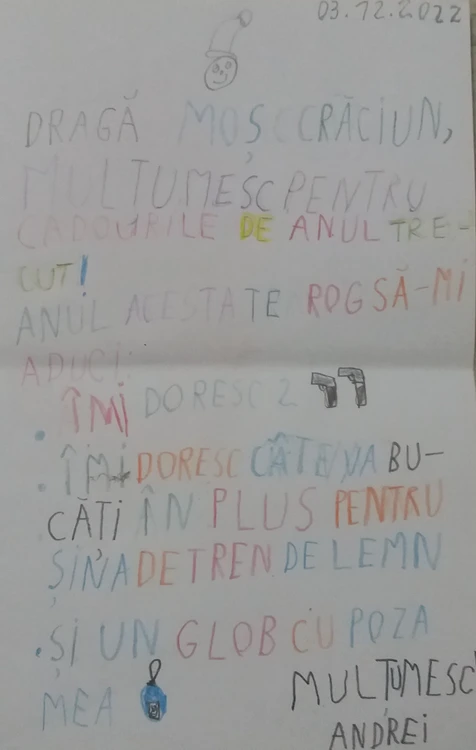 03.12.2022
DRAGĂ MOȘ CRĂCIUN,
MULTUMESC PENTRU
CADOURILE DE ANUL TRE-
CUT!
ANUL ACESTA TE ROG SĂ-MI
ADUCI:
. ÎMI DORESC 2
. ÎMI DORESC CÂTEVA BU-
CĂȚI ÎN PLUS PENTRU
ȘINA DE TREN DE LEMN
. ȘI UN GLOB CU POZA
MEA
MULȚUMESC!
ANDREI